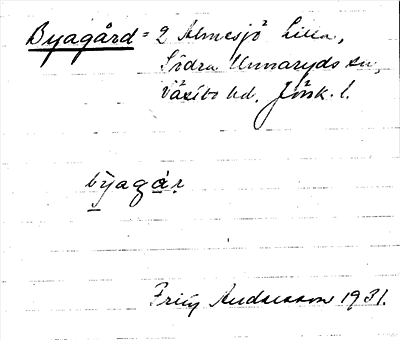 Byagård = 2 Älmesjö Lilla,
Södra Unnaryds sn,
Västbo hd, Jönk. l.
byagár
Fritz Andersson 1931.